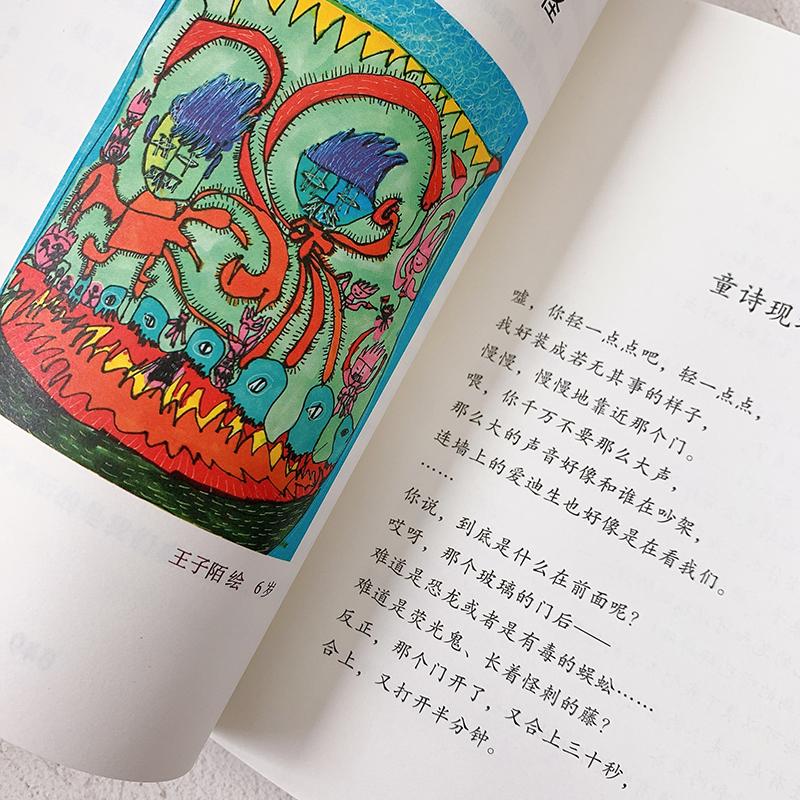 王子陌绘 6岁
童诗现
嘘，你轻一点点吧，轻一点点，
我好装成若无其事的样子，
慢慢，慢慢地靠近那个门。
喂，你千万不要那么大声，
那么大的声音好像和谁在吵架，
连墙上的爱迪生也好像是在看我们。
……
你说，到底是什么在前面呢？
哎呀，那个玻璃的门后——
难道是恐龙或者是有毒的蜈蚣……
难道是荧光鬼、长着怪刺的藤？
反正，那个门开了，又合上三十秒，
合上，又打开半分钟。